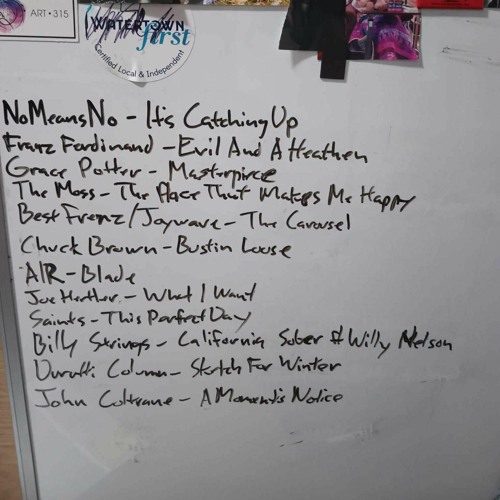 ART • 315
WATERTOWN
first
Certified Local & Independent
NoMeansNo - It's Catching Up
Franz Ferdinand - Evil And A Heathen
Grace Potter - Masterpiece
The Moss - The Place That Makes Me Happy
Best Frenz / Joywave - The Carousel
Chuck Brown - Bustin Loose
AIR - Blade
Joe Hertler - What I Want
Saints - This Perfect Day
Billy Strings - California Sober ft Willy Nelson
Durutti Column - Sketch For Winter
John Coltrane - A Moment's Notice